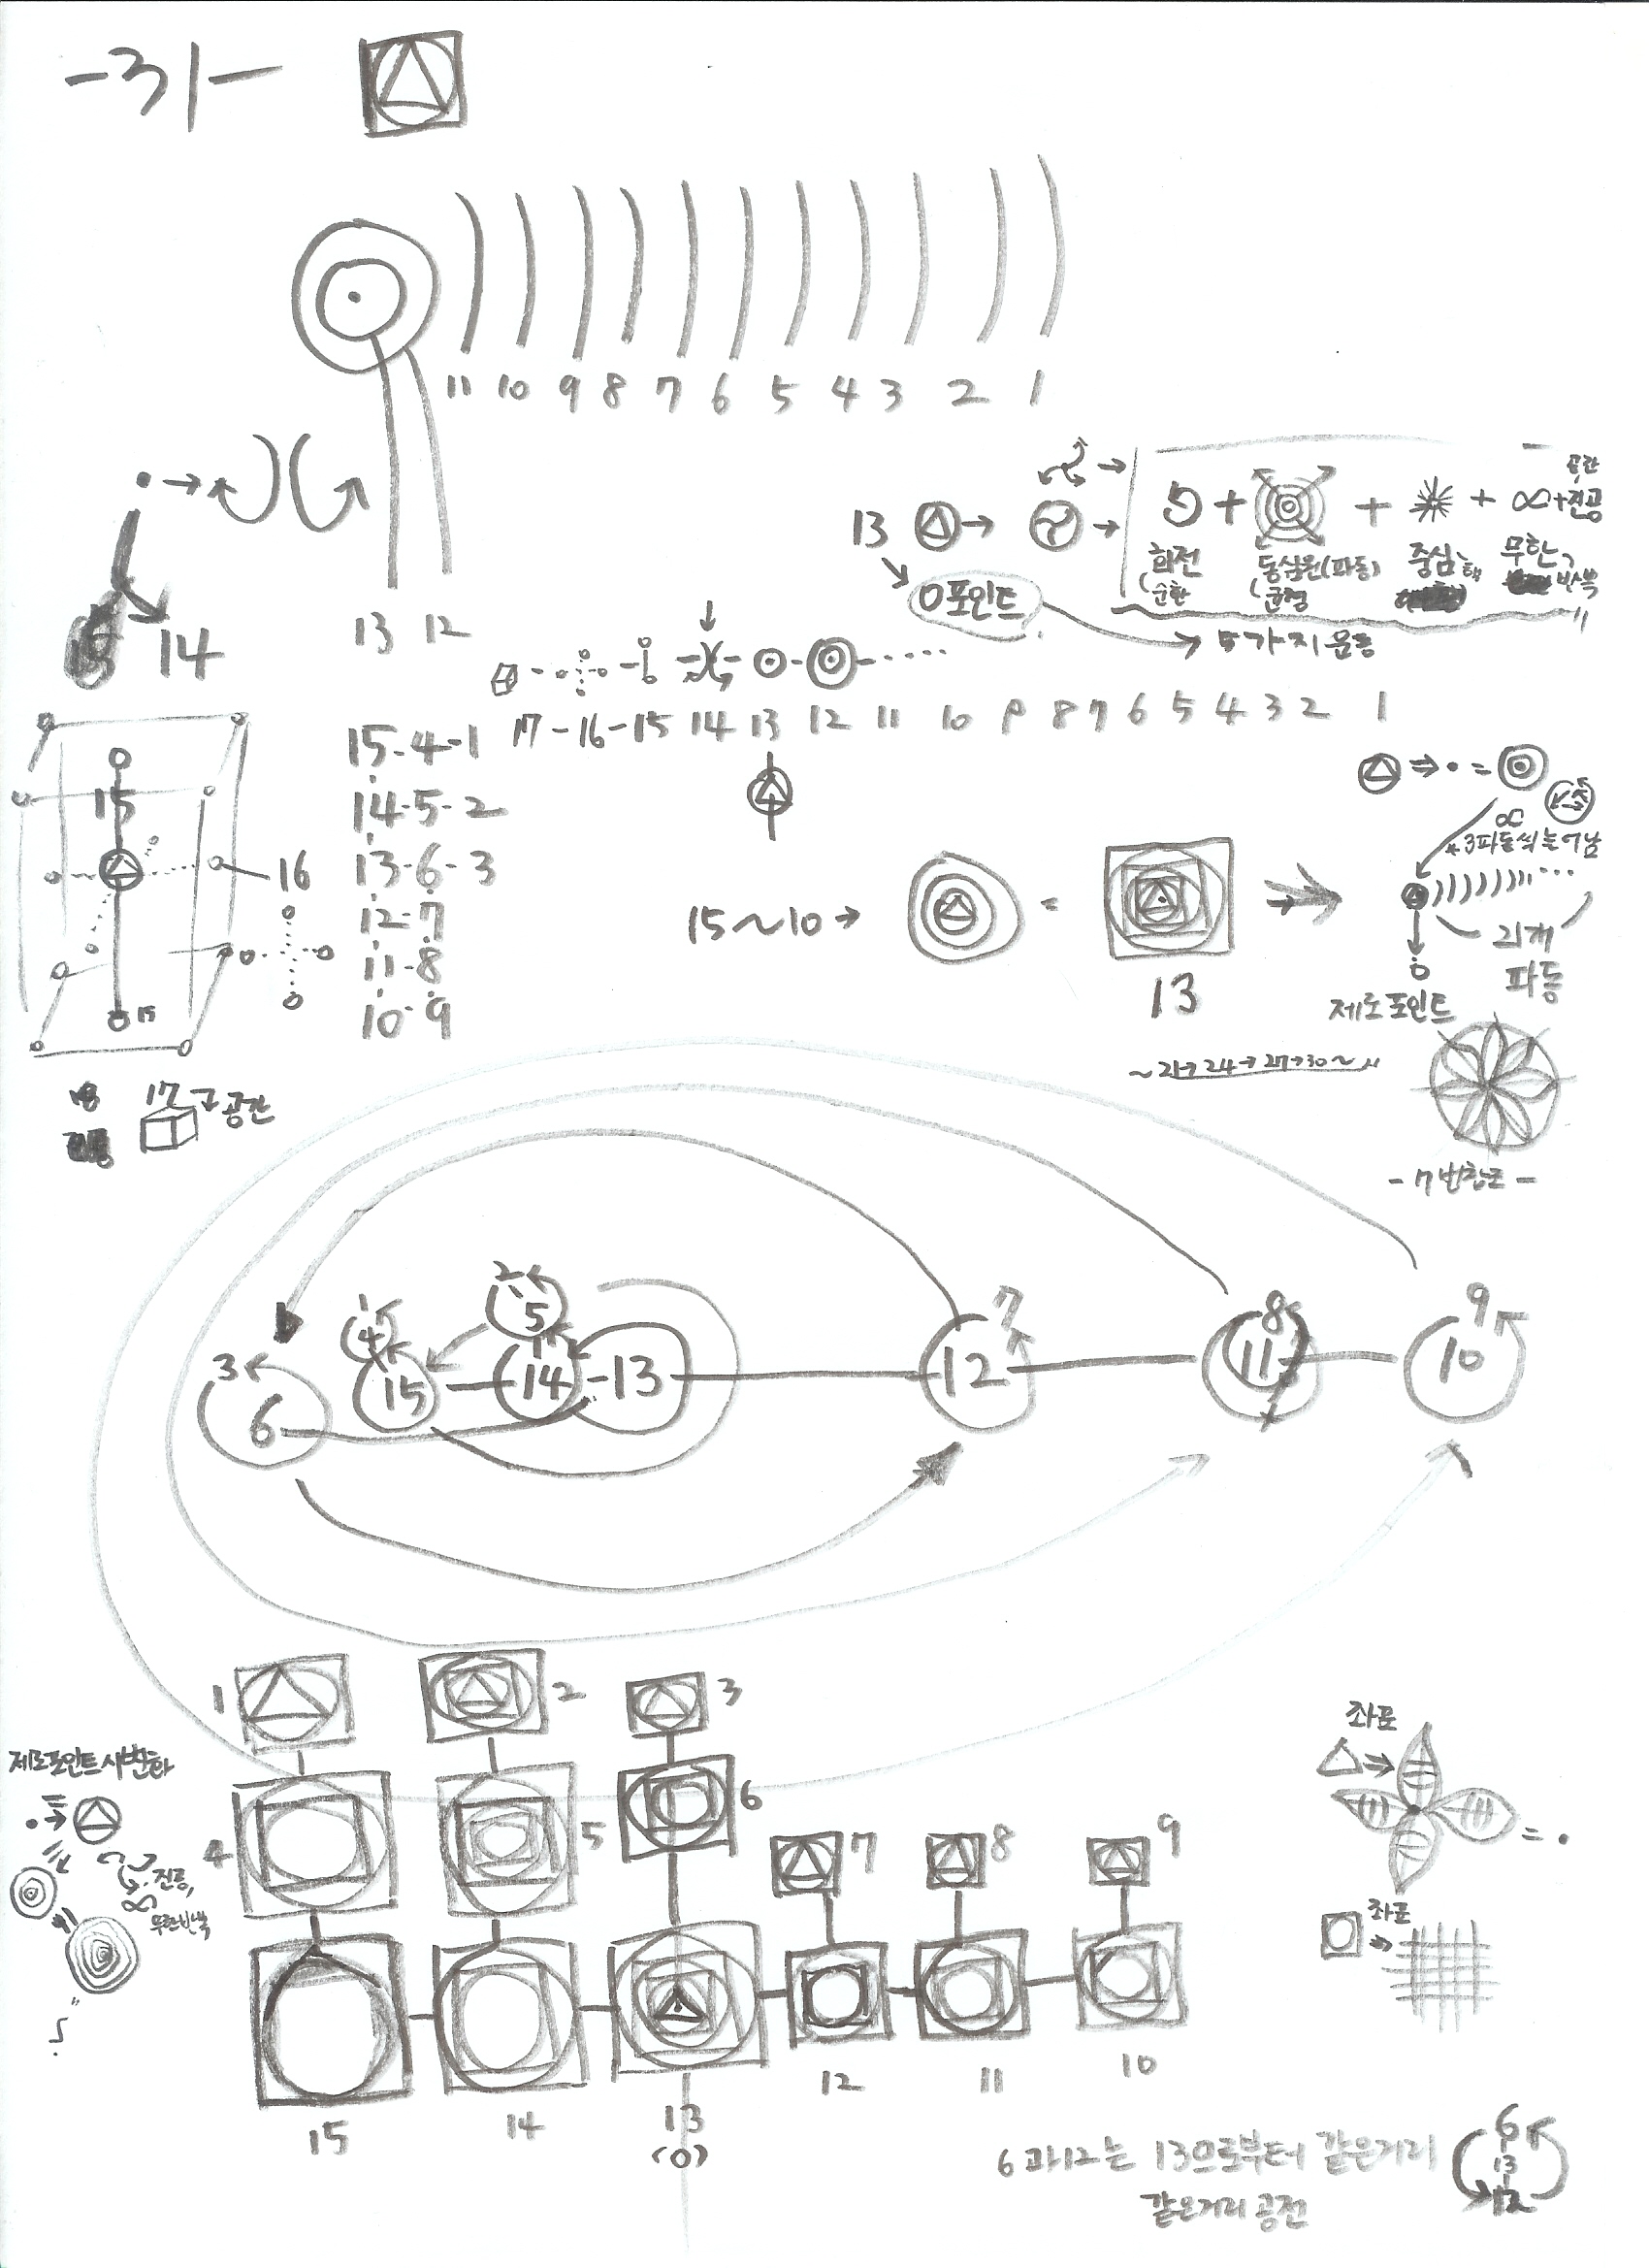 -31-
11 10 9 8 7 6 5 4 3 2 1
13 12
14
13
0포인트
회전
순환
동심원(파동)
균형
중심
핵
무한
반복
공간
5가지 운동
17-16-15 14 13 12 11 10 9 8 7 6 5 4 3 2 1
15
16
15
15-4-1
14-5-2
13-6-3
12-7
11-8
10-9
17
공간
15~10→
=
13
∞
3파동씩 늘어남
21개
파동
제로포인트
~21→24→27→30~
-7번창조-
3 6
1 4 15
2 5 14
-13
7 12
8 11
9 10
1 2 3
4 5 6
7 8 9
15 14 13 12 11 10
(0)
제로포인트시 변화
진동,
무한반복
좌표
= .
좌표
6과12는 13으로부터 같은거리
같은거리 공전
6
13
12